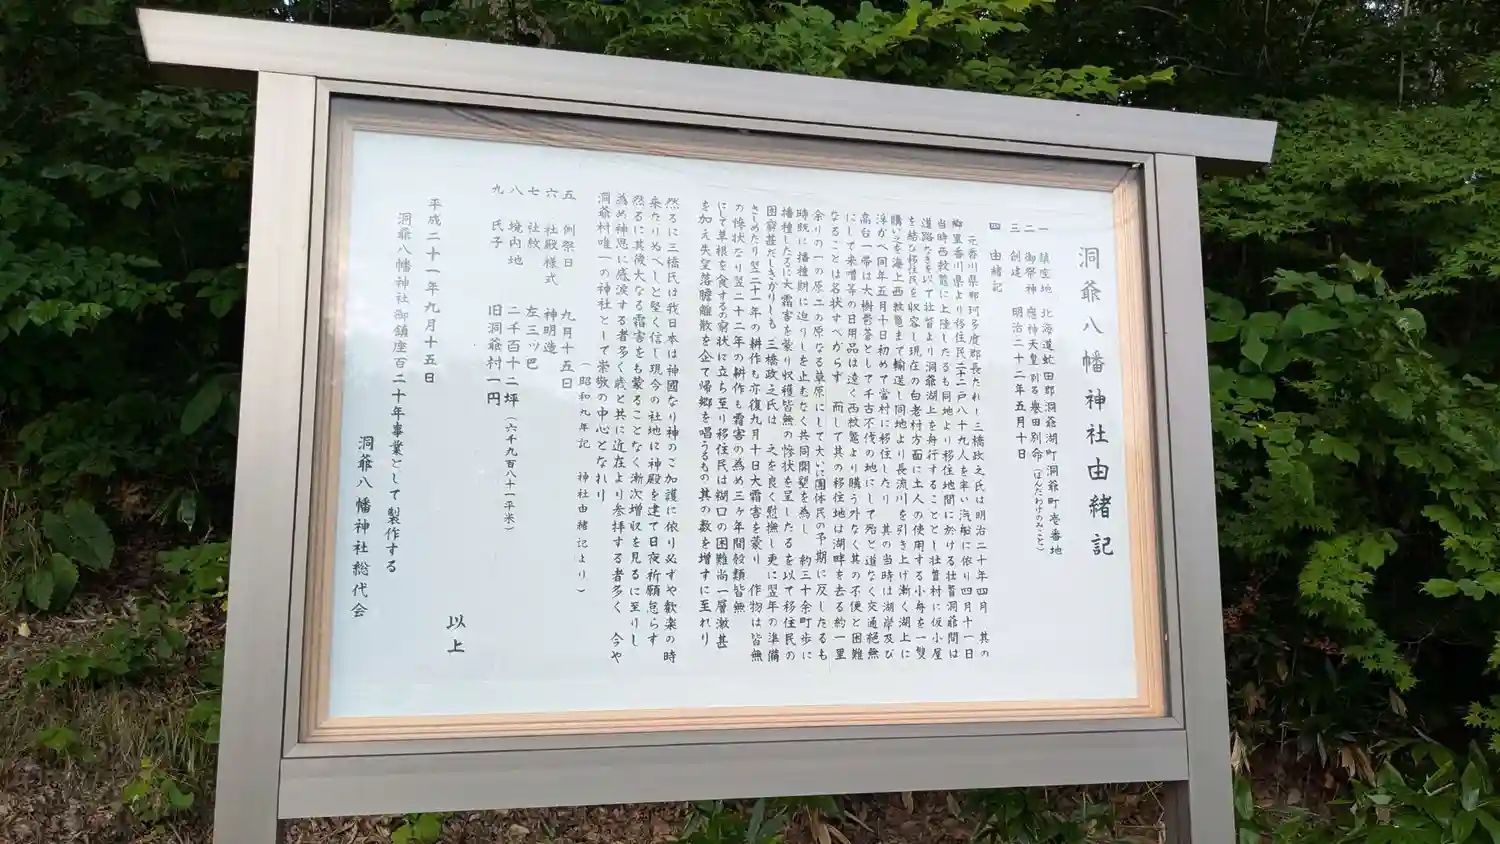 洞爺八幡神社由緒記
一 鎮座地 北海道虻田郡洞爺湖町洞爺町壱番地
二 御祭神 應神天皇 別る 誉田別命(ほんだわけのみこと)
三 創建 明治二十二年五月十日
四 由緒記
元香川県那珂多度郡長たれし三橋政之氏は明治二十年四月 其の
郷里香川県より移住民二十二戸八十九人を率い汽船に依り四月十一日
当時西紋鼈に上陸したるも同地より移住地間に於ける壮瞥洞爺間は
道路なきを以て壮瞥より洞爺湖上を舟行することとし壮瞥村に仮小屋
を結び移住民を収容し現在の白老村方面に土人の使用する小舟を一隻
購い之を海上西紋鼈まで輸送し同地より長流川を引き上げ漸く湖上に
浮かべ同年五月十日初めて當村に移住したり 其の当時は湖岸及び
高台一帯は大樹鬱蒼として千古不伐の地にして宛と道なく交通絶無
にして米噌等の日用品は遠く西紋鼈より購う外なく其の不便と困難
なることは名状すべからず 而して其の移住地は湖畔を去る約一里
余りの一の原二の原なる草原にして大いに團体民の予期に反したるも
時既に播種期に迫りしを止むなく共同開墾を為し 約三十余町歩に
播種したるに大霜害を蒙り収穫皆無の惨状を呈したるを以て移住民の
困窮甚だしきがりしも 三橋政之氏は 之を良く慰撫し更に翌年の準備
きしめたり翌二十一年の耕作も亦復九月十日大霜害を蒙り 作物は皆無
の惨状なり翌二十二年の耕作も霜害の為め三ヶ年間穀類皆無
にして草根を食するの窮状に立ち至り移住民は糊口の困難尚一層激甚
を加え失望落膽離散を企て帰郷を唱うるもの其の数を増すに至れり
然るに三橋氏は我日本は神國なり神のご加護に依り必ずや歓楽の時
来たりぬべしと堅く信し現今の社地に神殿を建て日夜祈願怠らず
然るに其後大なる霜害も蒙ることなく漸次増収を見るに至りし
為め神恩に感涙する者多く歳と共に近在より参拝する者多く 今や
洞爺村唯一の神社として崇敬の中心となれり
(昭和九年記 神社由緒記より)
五 例祭日 九月十五日
六 社殿様式 神明造
七 社紋 左三ツ巴
八 境内地 二千百十二坪(六千九百八十一平米)
九 氏子 旧洞爺村一円
以上
平成二十一年九月十五日
洞爺八幡神社御鎮座百二十年事業として製作する
洞爺八幡神社総代会